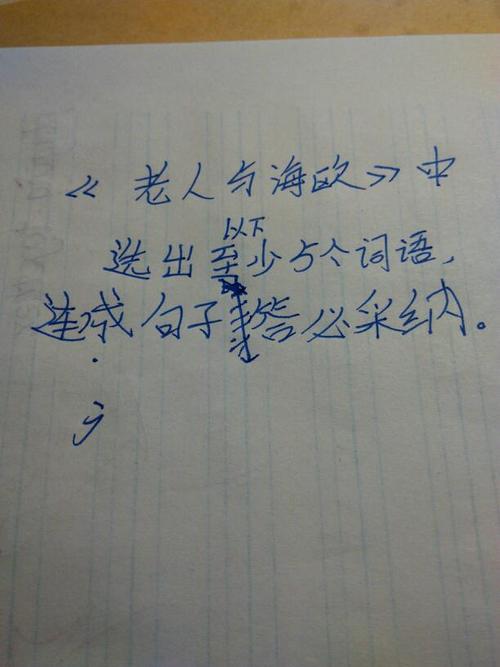 《老人与海欧》中
以下
选出至少5个词语,
连成句子答必采纳。